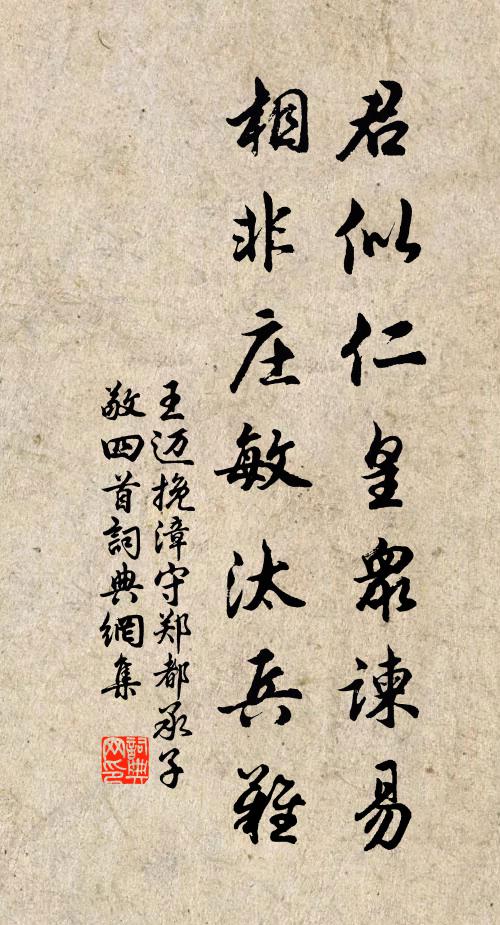 君似仁皇衆諫易
相非庄敏汰兵難
王迈挽漳守郑都承子
敬四首詞典網集
詞典网印